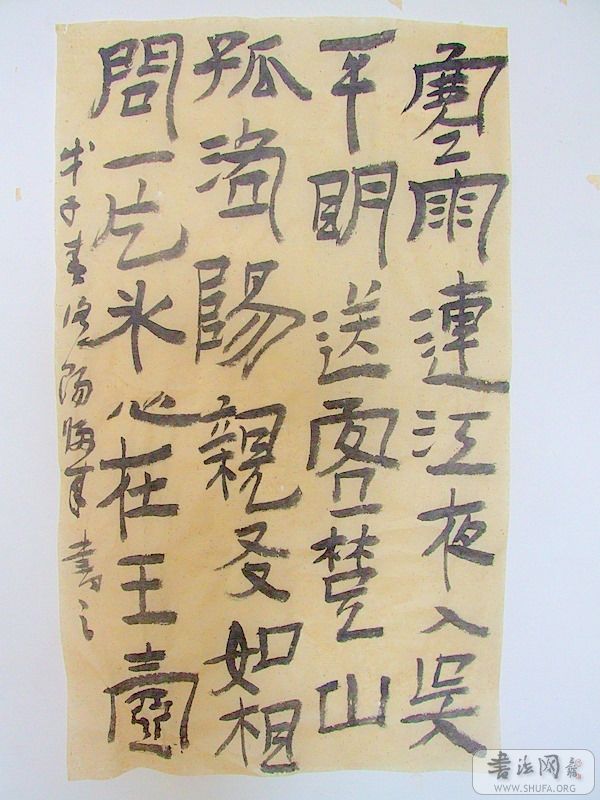 寒雨連江夜入吳
平明送客楚山
孤洛陽親友如相
問一片氷心在玉壺
戊子春洛陽書之
書法网
WWW.SHUFA.ORG